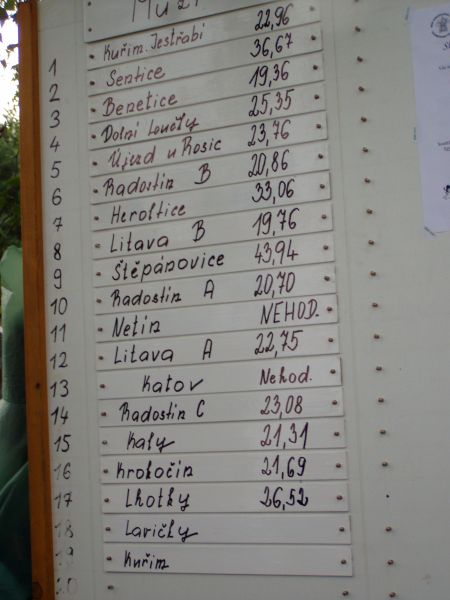 Muži
1 Kuřim. Jestřabí 22,96
2 Sentice 36,67
3 Benetice 19,36
4 Dolní Loučky 25,35
5 Újezd u Rosic 23,76
6 Radostín B 20,86
7 Heroltice 33,06
8 Litava B 19,76
9 Štěpánovice 43,94
10 Radostín A 20,70
11 Netín NEHOD.
12 Litava A 22,75
13 Katov Nehod.
14 Radostín C 23,08
15 Kaly 21,31
16 Krokočín 21,69
17 Lhotky 26,52
18 Lavičky
19 Kuřim
20